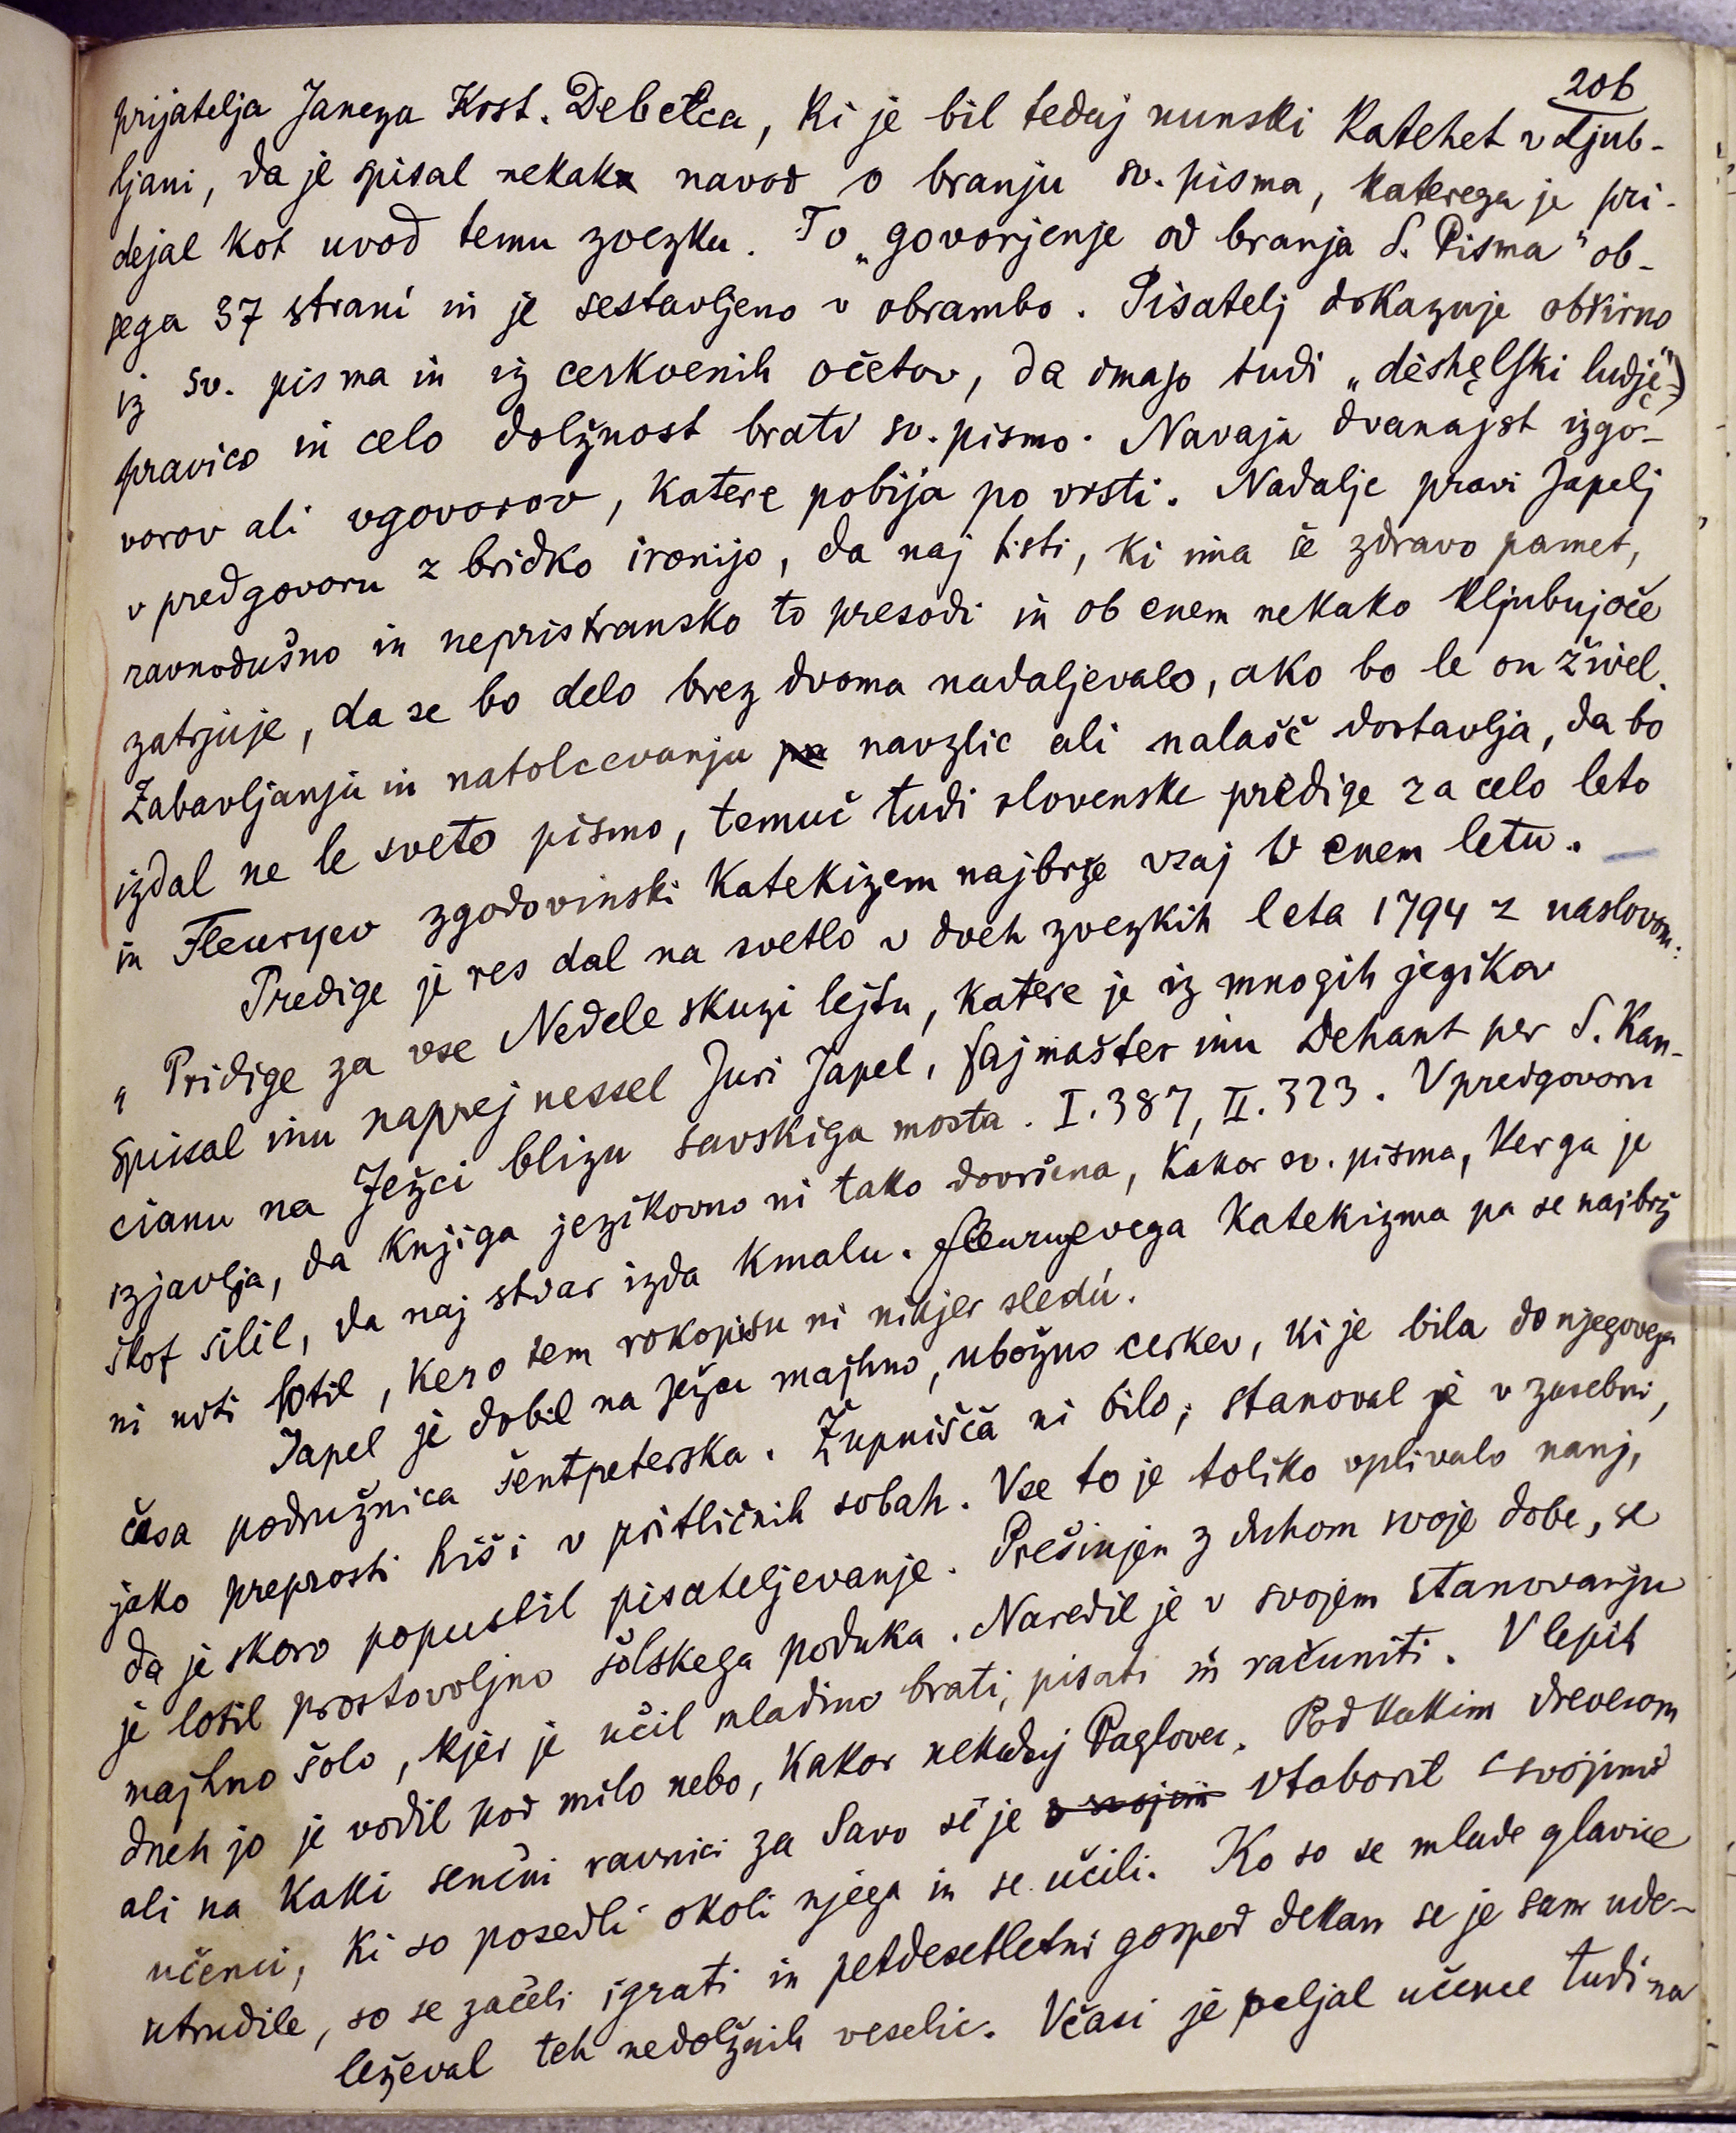 206
prijatelja Janeza Krst. Debelca, ki je bil tedaj nunski katehet v Ljub-
ljani, da je spisal nekak navod o branju sv. pisma, katerega je pri-
dejal kot uvod temu zvezku. To „govorjenje od branja S. Pisma" ob-
sega 37 strani in je sestavljeno v obrambo. Pisatelj dokazuje obširno
iz sv. pisma in iz cerkvenih očetov, da imajo tudi „dėshęlſki ludję"
pravico in celo dolžnost brati sv. pismo. Navaja dvanajst izgo-
vorov ali vgovorov, katere pobija po vrsti. Nadalje pravi Japelj
v predgovoru z bridko ironijo, da naj tisti, ki ima še zdravo pamet,
ravnodušno in nepristransko to presodi in ob enem nekako kljubujoče
zatrjuje, da se bo delo brez dvoma nadaljevalo, ako bo le on živel.
Zabavljanju in natolcevanju pa navzlic ali nalašč dostavlja, da bo
izdal ne le sveto pismo, temuč tudi slovenske predige za celo leto
in Fleuryev zgodovinski katekizem najbrže vsaj v enem letu.
Predige je res dal na svetlo v dveh zvezkih leta 1794 z naslovom:
„Pridige za vse Nedele skuzi lejtu, katere je iz mnogih jezikov
spissal inu naprej nessel Juri Japel, fajmašter inu Dehant per S. Kan-
cianu na Ježci blizu savskiga mosta. I. 387, II. 323. V predgovoru
izjavlja, da knjiga jezikovno ni tako dovršena, kakor sv. pisma, ker ga je
škof silil, da naj stvar izda kmalu. Fleuryevega katekizma pa se najbrž
ni niti lotil, ker o tem rokopisu ni nikjer sledú.
Japel je dobil na Ježci majhno, ubožno cerkev, ki je bila do njegovega
časa podružnica šentpeterska. Župnišča ni bilo; stanoval je v zasebni,
jako preprosti hiši v pritličnih sobah. Vse to je toliko vplivalo nanj,
da je skoro popustil pisateljevanje. Prešinjen z duhom svoje dobe, se
je lotil prostovoljno šolskega poduka. Naredil je v svojem stanovanju
majhno šolo, kjer je učil mladino brati, pisati in računiti. V lepih
dneh jo je vodil pod milo nebo, kakor nekadaj Paglovec. Pod kakim drevesom
ali na kaki senčni ravnici za Savo se je s svojimi vtaboril s svojimi
učenci, ki so posedli okoli njega in se učili. Ko so se mlade glavice
utrudile, so se začeli igrati in petdesetletni gospod dekan se je sam ude-
leževal teh nedolžnih veselic. Včasi je peljal učence tudi na